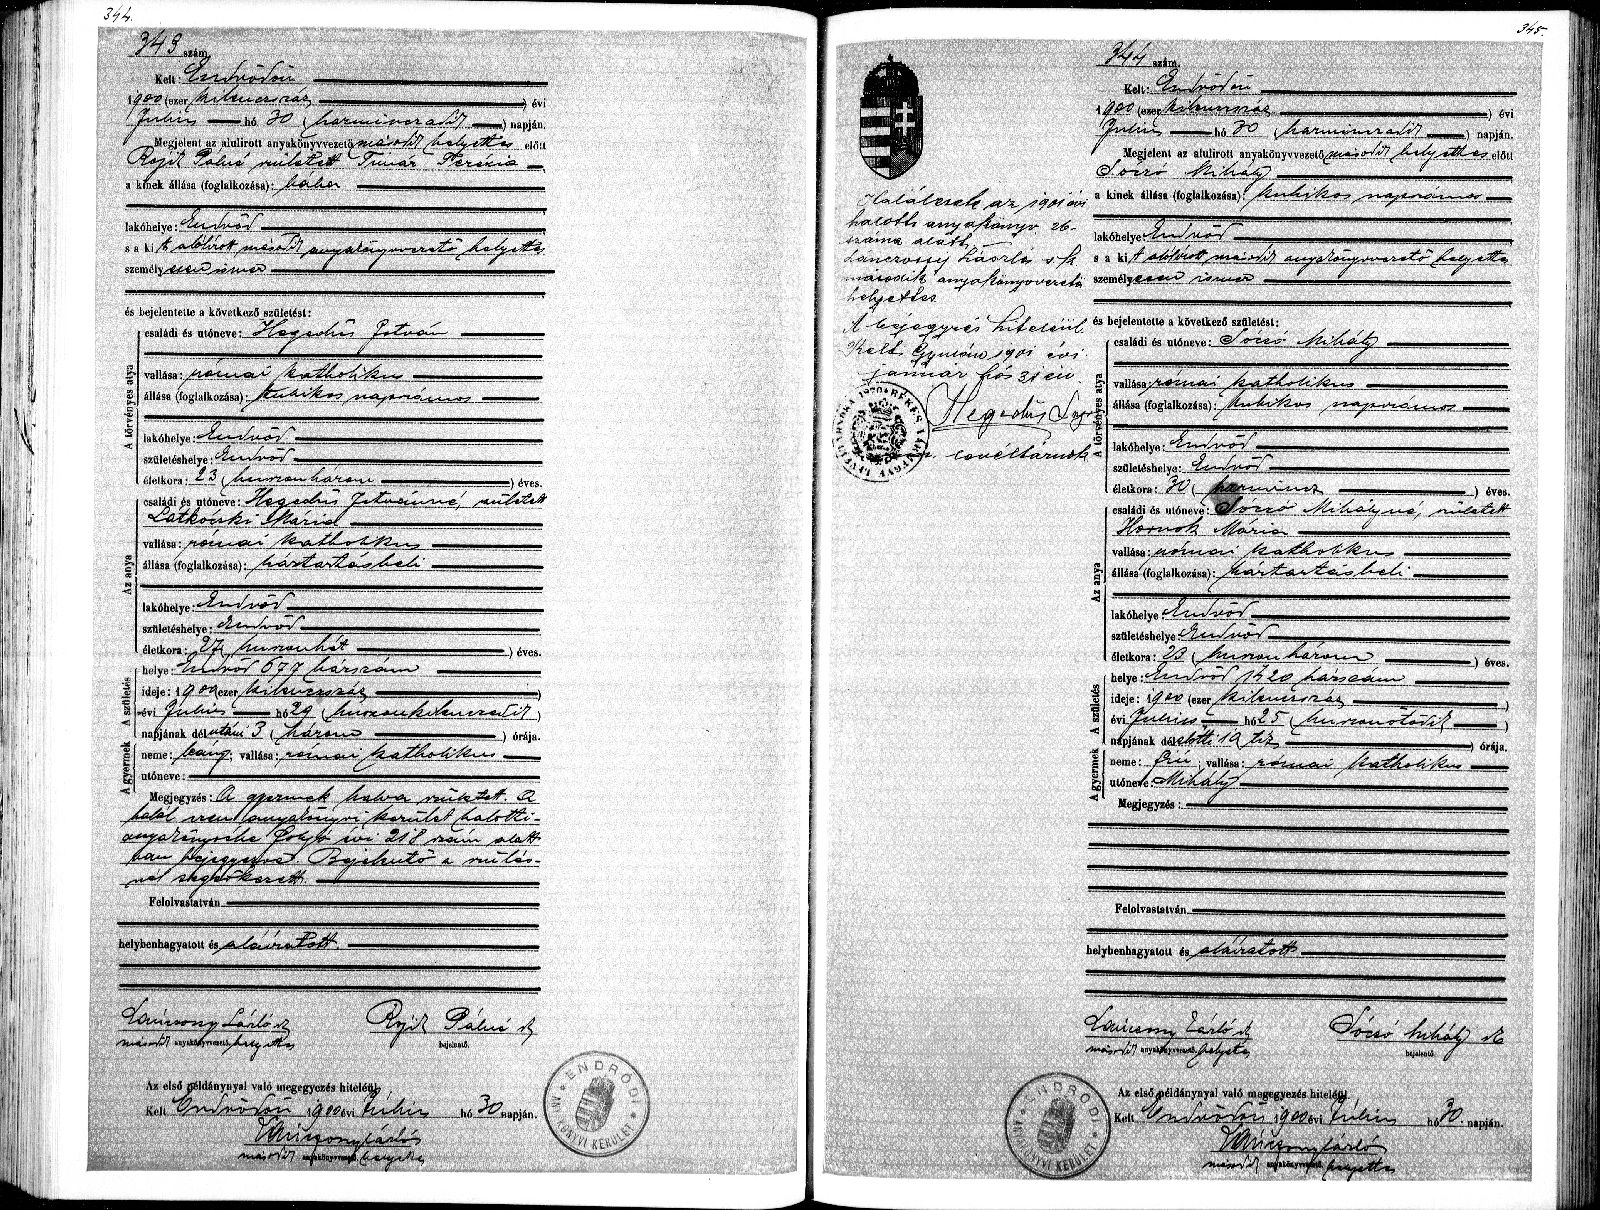 344.
343 szám.
Kelt: Endrődön
1900 (ezer kilenczszáz) évi
Julius hó 30 (harminczadik) napján.
Megjelent az alulirott anyakönyvvezető második helyettes előtt
Rojik Pálné született Timár Terézia
a kinek állása (foglalkozása): bába
lakóhelye: Endrőd
s a kit alólirott második anyakönyvvezető helyettes
személyesen ismer
és bejelentette a következő születést:
A törvényes atya
családi és utóneve: Hegedűs István
vallása: római katholikus
állása (foglalkozása): kubikos napszámos
lakóhelye: Endrőd
születéshelye: Endrőd
életkora: 23 (huszonhárom) éves.
Az anya
családi és utóneve: Hegedűs Istvánné, született
Látkóczki Mária
vallása: római katholikus
állása (foglalkozása): háztartásbeli
lakóhelye: Endrőd
születéshelye: Endrőd
életkora: 27 (huszonhét) éves.
A születés
helye: Endrőd 677 házszám
ideje: 1900 (ezer kilenczszáz)
évi Julius hó 29 (huszonkilenczedik)
napjának délutáni 3 (három) órája.
A gyermek
neme: leány; vallása: római katholikus
utóneve:
Megjegyzés: A gyermek halva született. A
halál ezen anyakönyvi kerület halotti
anyakönyvébe folyó évi 218 szám alatt
van bejegyezve. Bejelentő a szülés-
nél segédkezett.
Felolvastatván
helybenhagyatott és aláiratott.
Lanicsony László sk
második anyakönyvvezető, helyettes
Rojik Pálné sk
bejelentő.
Az első példánynyal való megegyezés hiteléül
Kelt Endrődön 1900 évi Július hó 30 napján.
Lanicsony László
második anyakönyvvezető helyettes
ENDRŐDI ANYAKÖNYVI KERÜLET
345.
344 szám.
Kelt: Endrődön
1900 (ezer kilenczszáz) évi
Julius hó 30 (harminczadik) napján.
Megjelent az alulirott anyakönyvvezető második helyettes előtt
Sóczó Mihály
a kinek állása (foglalkozása): kubikos napszámos
lakóhelye: Endrőd
s a kit alólirott második anyakönyvvezető helyettes
személyesen ismer
és bejelentette a következő születést:
A törvényes atya
családi és utóneve: Sóczó Mihály
vallása: római katholikus
állása (foglalkozása): kubikos napszámos
lakóhelye: Endrőd
születéshelye: Endrőd
életkora: 30 (harmincz) éves.
Az anya
családi és utóneve: Sóczó Mihályné, született
Hornok Mária
vallása: római katholikus
állása (foglalkozása): háztartásbeli
lakóhelye: Endrőd
születéshelye: Endrőd
életkora: 23 (huszonhárom) éves.
A születés
helye: Endrőd 1420 házszám
ideje: 1900 (ezer kilenczszáz)
évi Julius hó 25 (huszonötödik)
napjának délelőtti 10 tíz órája.
A gyermek
neme: fiú; vallása: római katholikus
utóneve: Mihály
Megjegyzés:
Felolvastatván
helybenhagyatott és aláiratott
Lanicsony László sk
második anyakönyvvezető, helyettes
Sóczó Mihály sk
bejelentő
Az első példánynyal való megegyezés hiteléül
Kelt Endrődön 1900 évi Július hó 30. napján.
Lanicsony László
második anyakönyvvezető, helyettes
ENDRŐDI ANYAKÖNYVI KERÜLET
Halálesete az 1901 évi
halotti anyakönyv 26
száma alatt
Lanczossy László s. k.
második anyakönyvvezető
helyettes
A bejegyzés hiteléül.
Kelt Gyulán 1901 évi
január hó 31 én
Hegedűs
levéltárnok
BÉKÉS VÁRMEGYE LEVÉLTÁRNOKA 1870